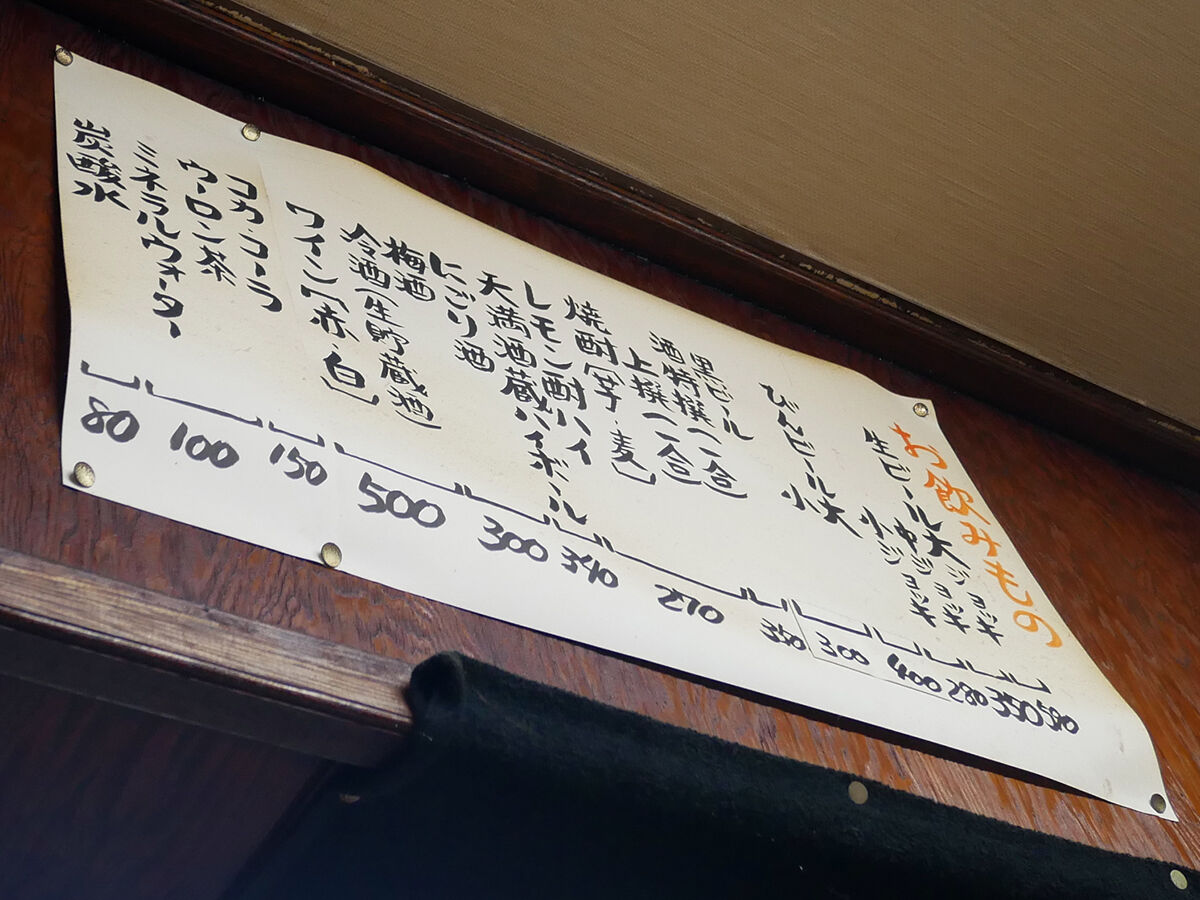 お飲みもの
生ビール大ジョッキ
中ジョッキ
小ジョッキ
びんビール大
小
黒ビール
酒特撰(一合)
上撰(一合)
焼酎(芋・麦)
レモン酎ハイ
天満酒蔵ハイボール
にごり酒
梅酒
冷酒(生貯蔵酒)
ワイン(赤・白)
コカ・コーラ
ウーロン茶
ミネラルウォーター
炭酸水
580
350
280
400
300
350
270
340
300
500
150
100
80